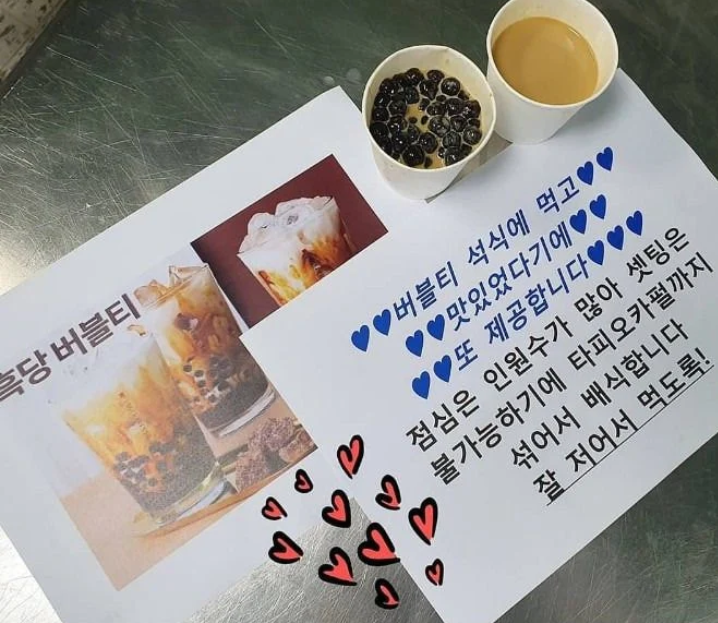 흑당 버블티
♥♥버블티 석식에 먹고♥♥
♥♥맛있었다기에♥♥
♥♥또 제공합니다♥♥♥
점심은 인원수가 많아 셋팅은
불가능하기에 타피오카펄까지
섞어서 배식합니다
잘 저어서 먹도록!